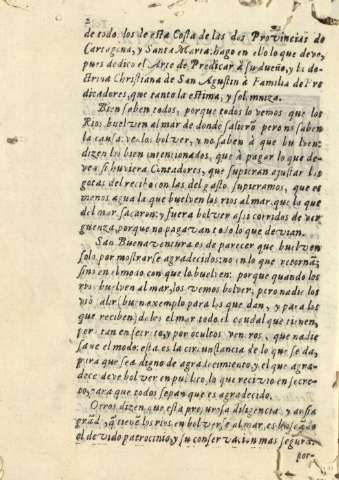 de todo, los de esta Costa de las dos Provincias de
Cartagena, y Santa Marta: hago en ello lo que devo,
pues dedico el Arte de Predicar à su dueño, y la do-
ctrina Christiana de San Agustin à Familia de Pre
dicadores, que tanto la estima, y solemniza.
Bien saben todos, porque todos lo vemos que los
Rios buelven al mar de donde salierō pero no saben
la causa, veenlos bolver, y no saben à que buelven:
dizen los bien intencionados, que à pagar lo que de-
ven si huviera Contadores, que supieran ajustar las
gotas del recibo con las del gasto, supieramos, que es
menos agua la que buelven los rios al mar, que la que
del mar sacaron; y fuera bolver assi corridos de ver-
guenza, porque no pagavan todo lo que devian.
San Buenaventura es de parecer que buelven
solo, por mostrarse agradecidos: no en lo que retornā;
sino en el modo con que lo buelven: porque quando los
rios buelven al mar, los vemos bolver; pero nadie los
viò salir (buen exemplo para los que dan, y para los
que reciben) dales el mar todo el caudal que tienen,
pero tan en secreto, y por ocultos veneros, que nadie
save el modo: esta es la circunstancia de lo que se da,
para que sea digno de agradecimiento, y el que agra-
dece deve bolver en publico, lo que recivio en secre-
to, para que todos sepan que es agradecido.
Otros dizen que esta presurosa diligencia, y ansia
grād, q̄ tiene los rios en bolverse al mar, es buscādo
el devido patrocinio, y su conservacion mas segura:
por-